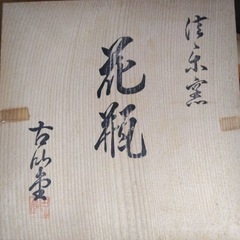 信楽窯
花瓶
古仙堂